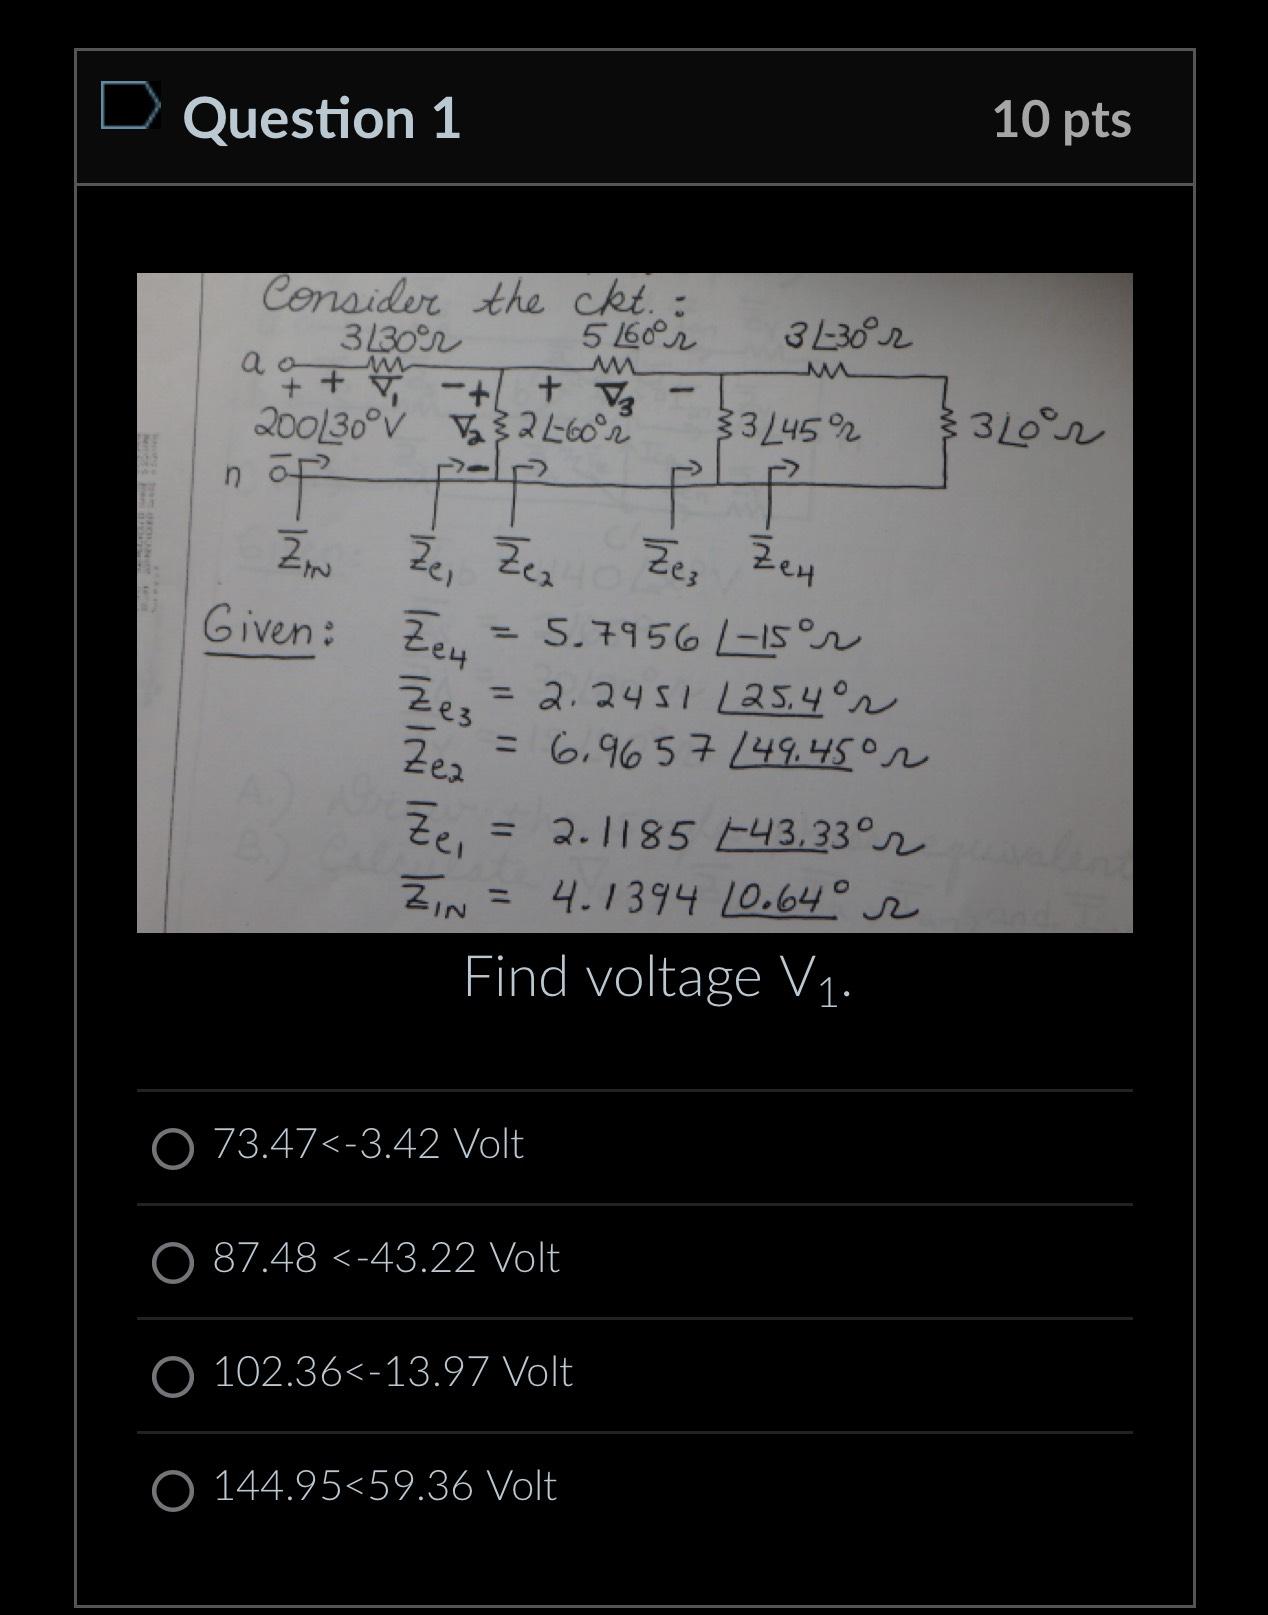 Question 1
10 pts
Consider the ckt. :
3∠30°Ω 5∠60°Ω 3∠-30°Ω
a + + V̄₁ - + + V̄₃ -
200∠30°V V̄₂ 2∠-60°Ω 3∠45°Ω 3∠0°Ω
n - -
Z̄IN Z̄e₁ Z̄e₂ Z̄e₃ Z̄e4
Given: Z̄e4 = 5.7956 ∠-15°Ω
Z̄e3 = 2.2451 ∠25.4°Ω
Z̄e2 = 6.9657 ∠49.45°Ω
Z̄e1 = 2.1185 ∠-43.33°Ω
Z̄IN = 4.1394 ∠0.64°Ω
Find voltage V₁.
73.47<-3.42 Volt
87.48 <-43.22 Volt
102.36<-13.97 Volt
144.95<59.36 Volt